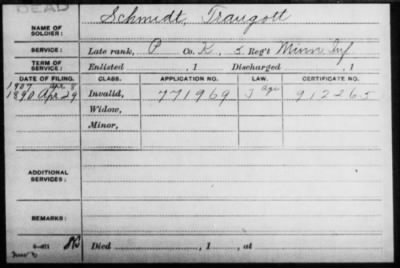 DEAD
NAME OF SOLDIER: Schmidt, Traugott
SERVICE: Late rank, P Co. K, 5 Reg't Minn Inf
TERM OF SERVICE: Enlisted , 1 Discharged , 1
DATE OF FILING. CLASS. APPLICATION NO. LAW. CERTIFICATE NO.
1907 Apr 8
1890 Apr 29 Invalid, 771969 J Age 912265
Widow,
Minor,
ADDITIONAL SERVICES:
REMARKS:
Died , 1 , at